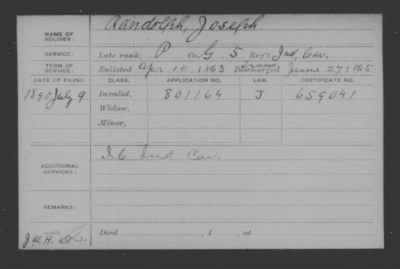 NAME OF SOLDIER: Randolph, Joseph
SERVICE: Late rank, P Co. G, 5 Reg't Ind. Cav.
TERM OF SERVICE: Enlisted Apr 10, 1863 Discharged June 27, 1865
DATE OF FILING. CLASS. APPLICATION NO. LAW. CERTIFICATE NO.
1890 July 9 Invalid, 801164 J 659041
Widow,
Minor,
ADDITIONAL SERVICES: I 6 Ind Cav.
REMARKS:
J.M.H.
Died , 1 , at